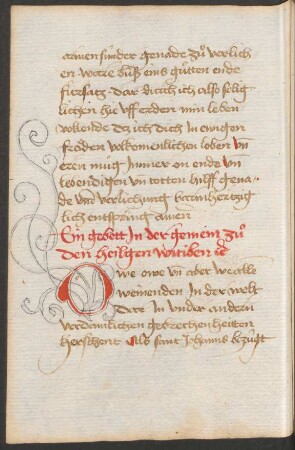 armen sünder genade zů verlich
en ware büß eins gůtten ende
fürsatz dar durch ich also selig
lichen hie vff erden min leben
vollende dz ich dich in ewigen
freiden volkomenlichen loben vn
eren mug jmmer on ende vn
lebendigen vn totten hilff gena
de vnd verlichung barmhertzig
lich entspring amen
Ein gebett in der gemein zů
den heiligen
Owe owe vn aber we alle
weinenden in der welt
Dare in vnder andern
verdamlichen gebrechenheitten
herschent Als sant johannes bezügt